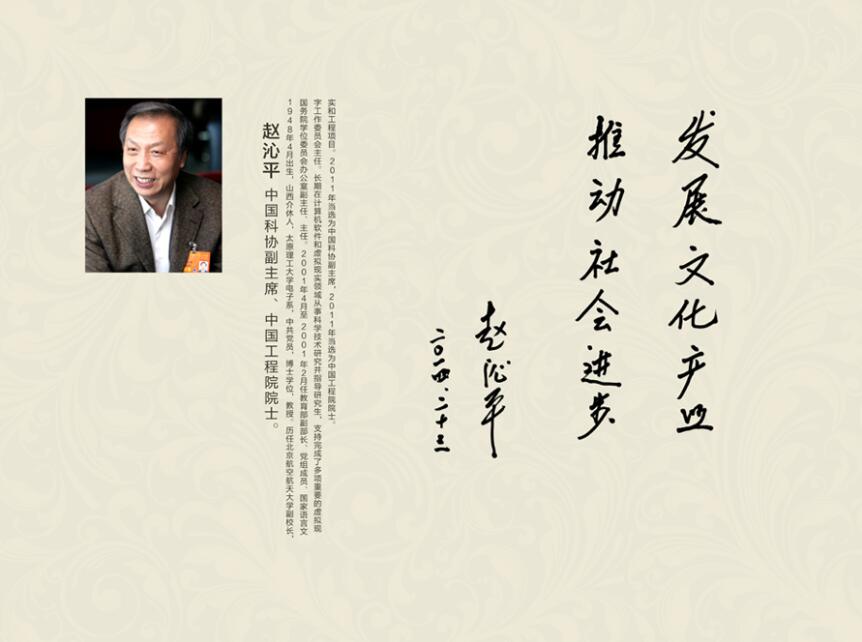 发展文化产业
推动社会进步
赵沁平
二〇一四、二十三
赵沁平 中国科协副主席、中国工程院院士。
1948年4月出生，山西介休人，太原理工大学电子系，中共党员，博士学位，教授。历任北京航空航天大学副校长，
国务院学位委员会办公室副主任、主任。2001年4月至 2001年2月任教育部副部长、党组成员、国家语言文
字工作委员会主任。长期在计算机软件和虚拟现实领域从事科学技术研究并指导研究生，支持完成了多项重要的虚拟现
实和工程项目。2011年当选为中国科协副主席，2011年当选为中国工程院院士。